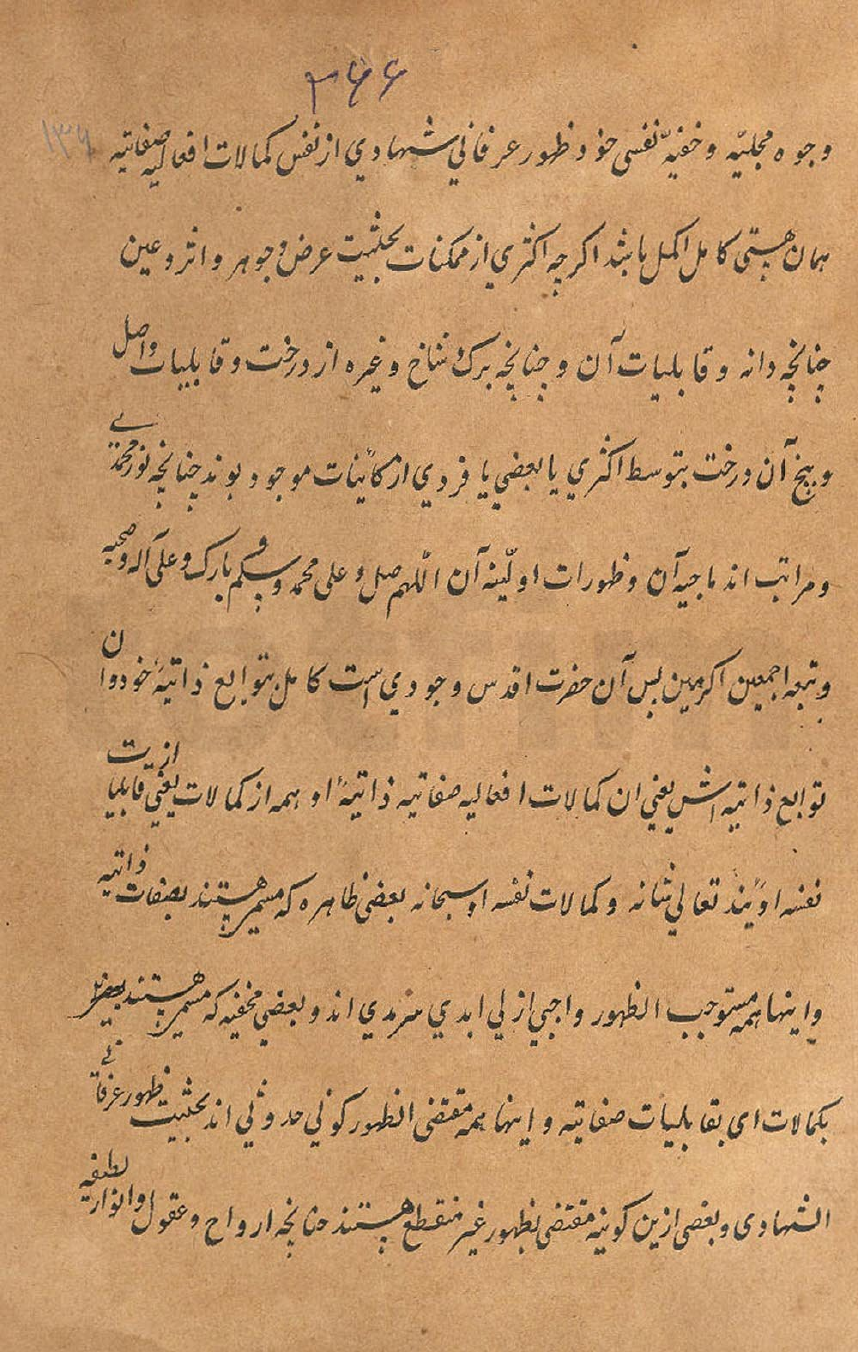 ۲۶۶
۱۳۶
وجوه مجلیّه و خفیّه نفسی خود ظهور عرفانی شهادی از نفس کمالات افعالیه صفاتیه
همان هستی کامل اکمل باشد اکرچه اکثری از ممکنات بحیثیت عرض و جوهر و اثر و عین
چنانچه دانه و قابلیات آن و چنانچه برک شاخ وغیره از درخت و قابلیات واصل
و بیخ آن درخت بتوسط اکثری یا بعضی یا فردی از مکاینات موجود بوند چنانچه نور محمدی
و مراتب اندماجیه آن و ظهورات اولّینه آن اللهم صل و علی محمد و سلم و بارک و علی آله و صحبه
و تبعه اجمعین اکرمین پس آن حضرت اقدس وجودی است کامل بتوابع ذاتیهٔ خود وان
توابع ذاتیه اش یعنی ان کمالات افعالیه صفاتیه ذاتیهٔ او همه از کمالات یعنی از قابلیات
نفسه اویند تعالی شانه و کمالات نفسه او سبحانه بعضی ظاهره که مسمی هستند بصفات ذاتیه
و اینها همه مستوجب الظهور واجبی ازلی ابدی سرمدی اند و بعضی مخفیه که مسمی هستند
بکمالات ای بقابلیات صفاتیه و اینها همه مقتضی الظهور کونی حدوثی اند بحیثیت ظهور عرفانی
الشهادی و بعضی ازین کونیه مقتضی بظهور غیر منقطع هستند چنانچه ارواح و عقول و انوار لطیفیه